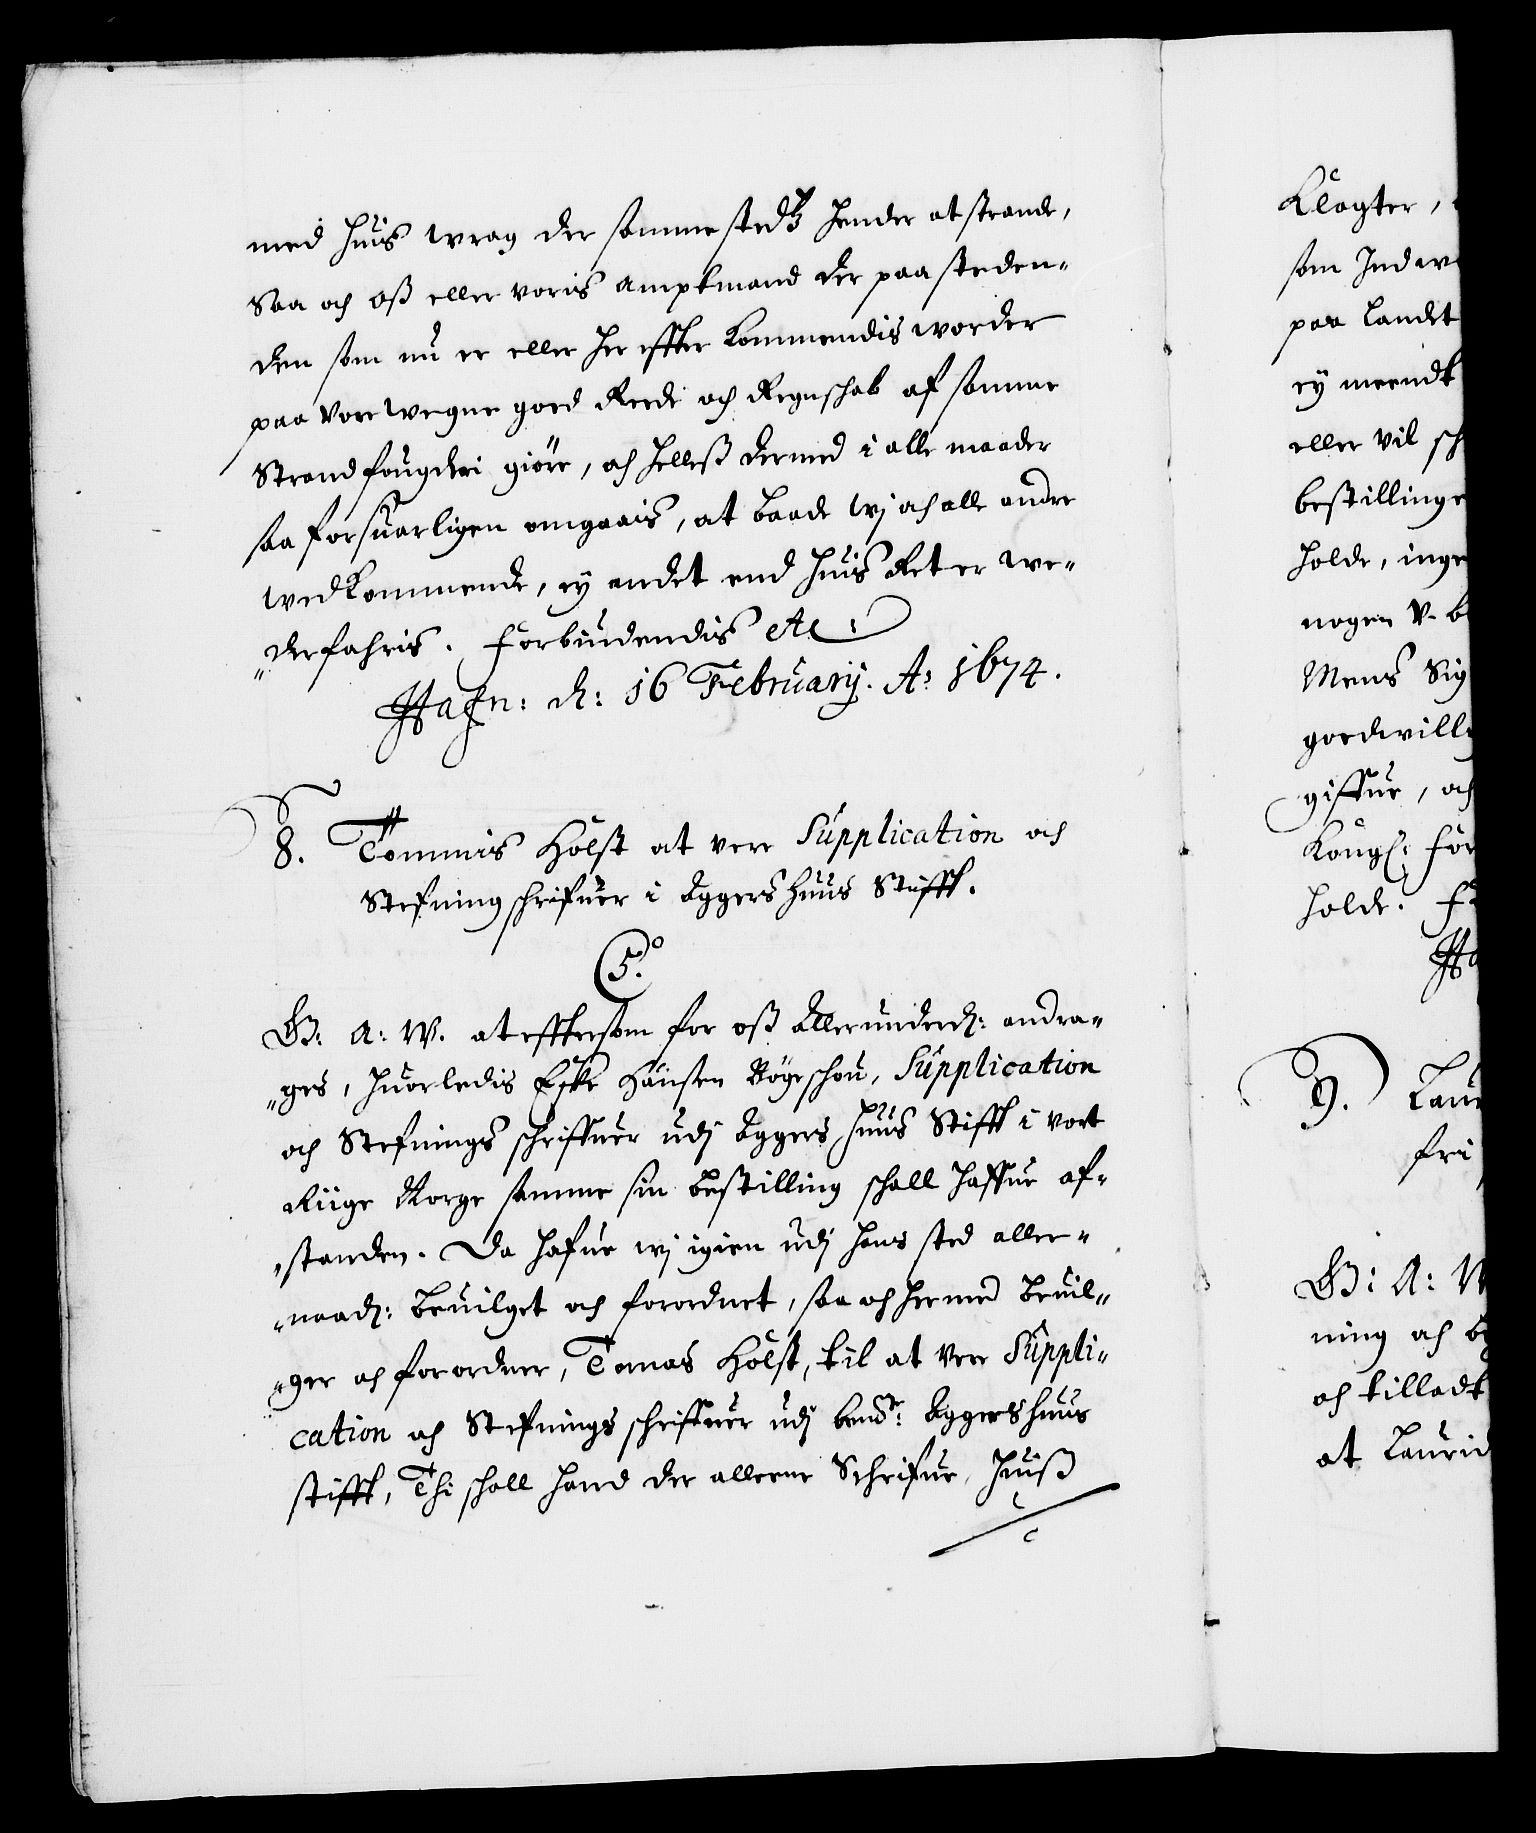 med huis wrag der sammestedtz hender at strande,
Saa och oß eller voris Amptmand der paa steden-
den som nu er eller her effter kommendis worder
paa Vore wegne goed Rede och Regnschab af samme
Strandfougderi giöre, och helleß dermed i alle maader
saa forsuarligen omgaais, at baade wj och alle andre
wedkommende, ej andet end huis Ret er we-
derfahris. Forbiudendis etc:
Hafn: d: 16 February. A: 1674.
8. Tommis Holst at vere Supplication och
Stefning schrifuer i Aggershuus Stifft.
C5.º
G: A: W. at efftersom for oß Allerunderd: andra-
ges, huorledis Eske Hansen Bögeschou, Supplication
och Stefnings schriffuer udj Aggers huus Stifft i vort
Riige Norge samme sin bestilling schall haffue af-
standen. Da hafue wj igien udj hans sted aller-
naad: beuilget och forordnet, saa och hermed beuil-
ger och forordner, Tomas Holst, til at vere Suppli-
cation och Stefnings schriffuer udj bemte: Aggershuus
stifft, Thi schall hand der alleene Schrifue, huiß
Klagter,
som Ind
paa Landet
ey meendt
eller vil
bestillinge
holde, inge
nogen
Mens Sig
goedwill
giffue, och
Kongl: For
holde. F
Ha
9. Laur
fri
G: A: W
ning och
och tilladt
at Laurid